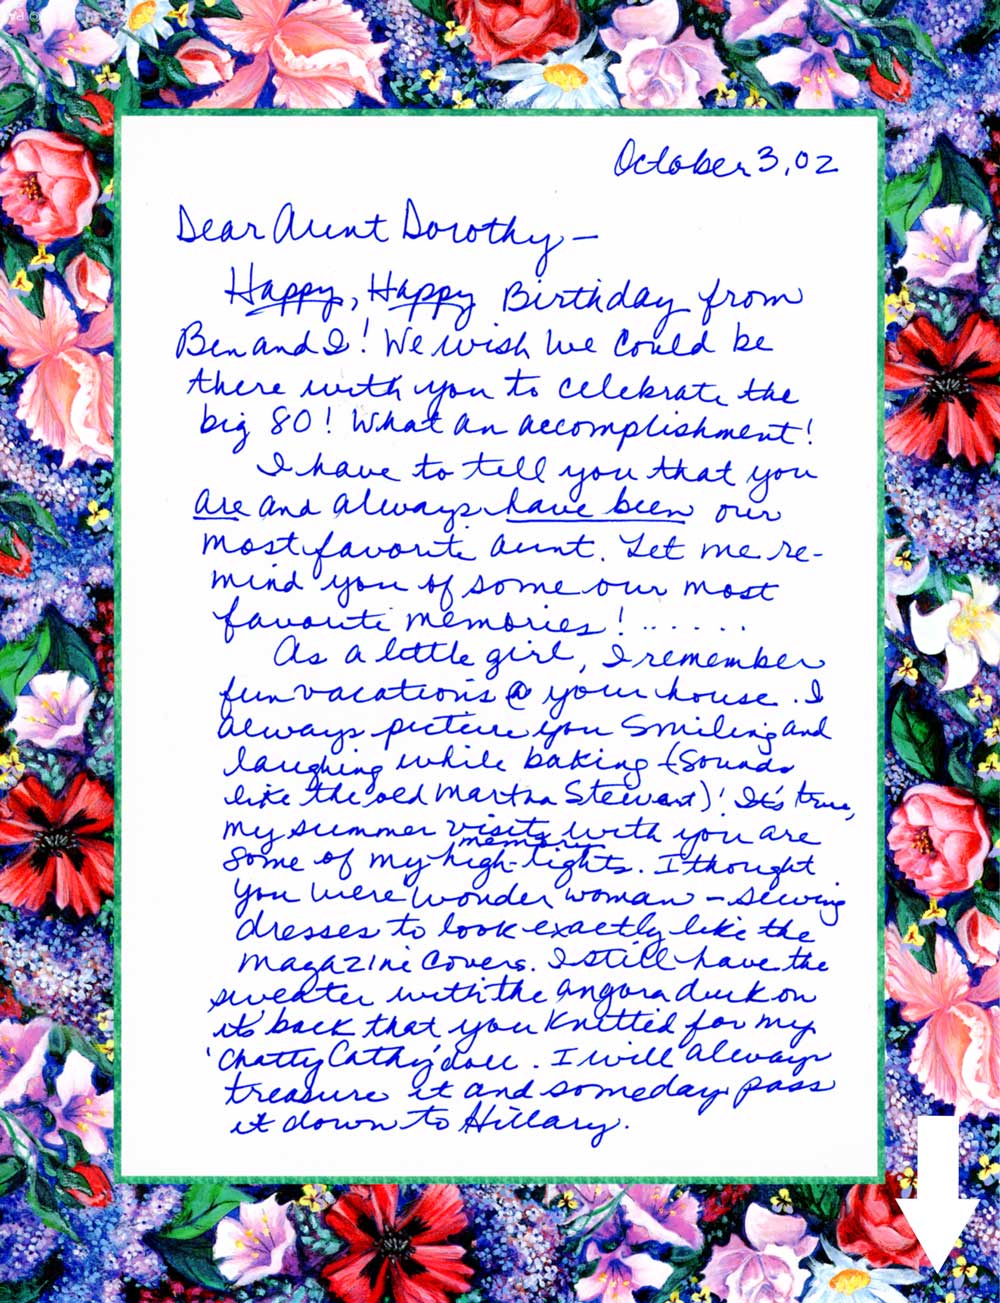 October 3, 02
Dear Aunt Dorothy –
Happy, Happy Birthday from
Ben and I! We wish we could be
there with you to celebrate the
big 80! What an accomplishment!
I have to tell you that you
are and always have been our
most favorite aunt. Let me re-
mind you of some our most
favorite memories! ......
As a little girl, I remember
fun vacations @ your house. I
always picture you smiling and
laughing while baking (sounds
like the old Martha Stewart)! It's true,
my summer visits with you are
some of my memory high-lights. I thought
you were wonder woman – sewing
dresses to look exactly like the
magazine covers. I still have the
sweater with the angora duck on
its' back that you knitted for my
'Chatty Cathy' doll. I will always
treasure it and someday pass
it down to Hillary.